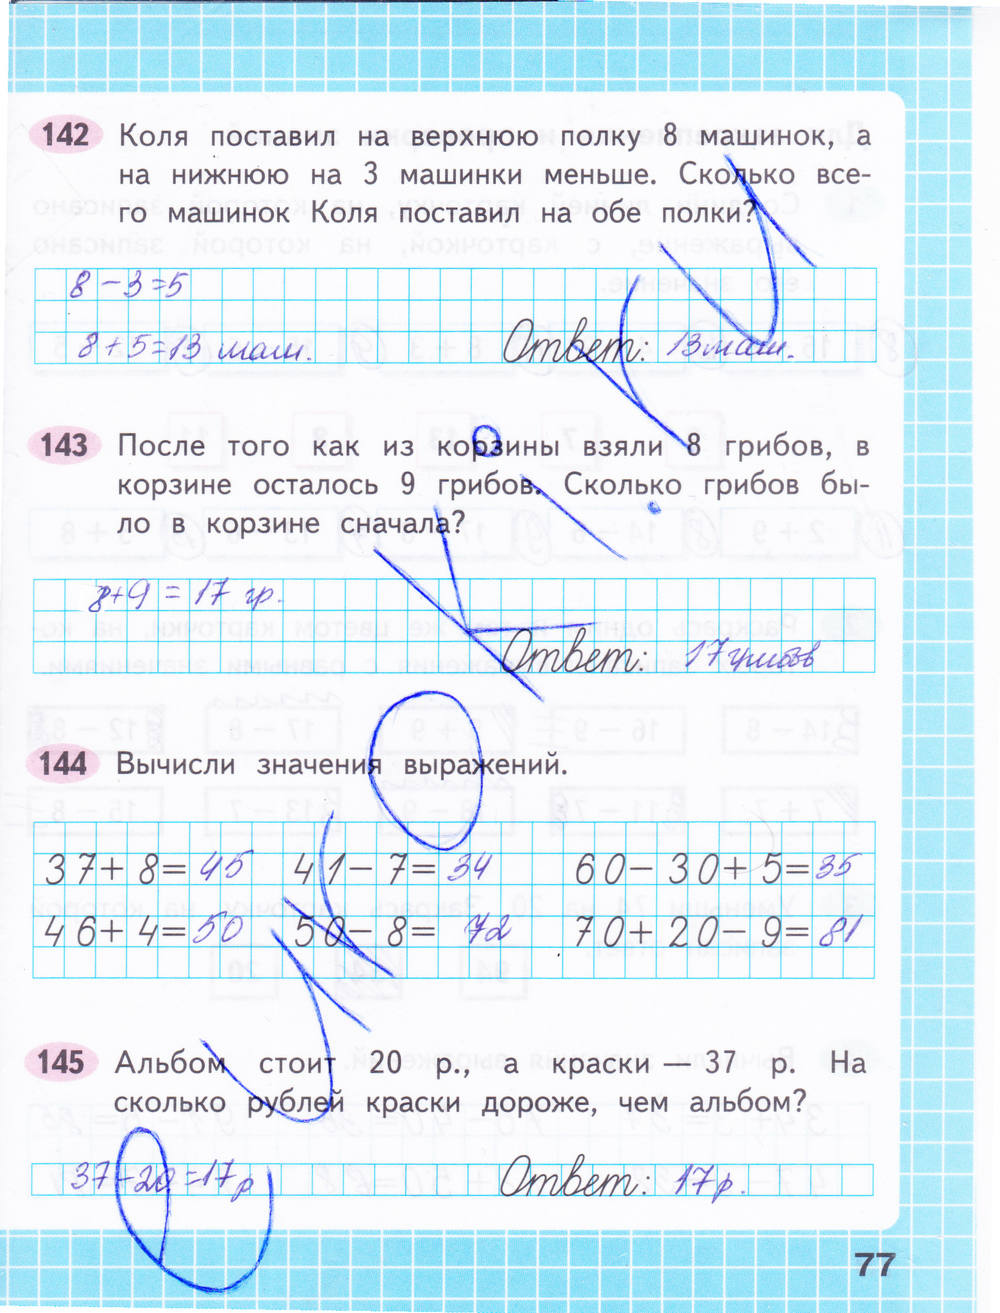 142 Коля поставил на верхнюю полку 8 машинок, а
на нижнюю на 3 машинки меньше. Сколько все-
го машинок Коля поставил на обе полки?
8 - 3 = 5
8 + 5 = 13 маш. Ответ: 13 маш.
143 После того как из корзины взяли 8 грибов, в
корзине осталось 9 грибов. Сколько грибов бы-
ло в корзине сначала?
8+9 = 17 гр.
Ответ: 17 грибов
144 Вычисли значения выражений.
37+ 8= 45 41- 7= 34 60- 30+ 5= 35
46+ 4= 50 50- 8= 42 70+ 20- 9= 81
145 Альбом стоит 20 р., а краски — 37 р. На
сколько рублей краски дороже, чем альбом?
37+20=17р Ответ: 17р.
77